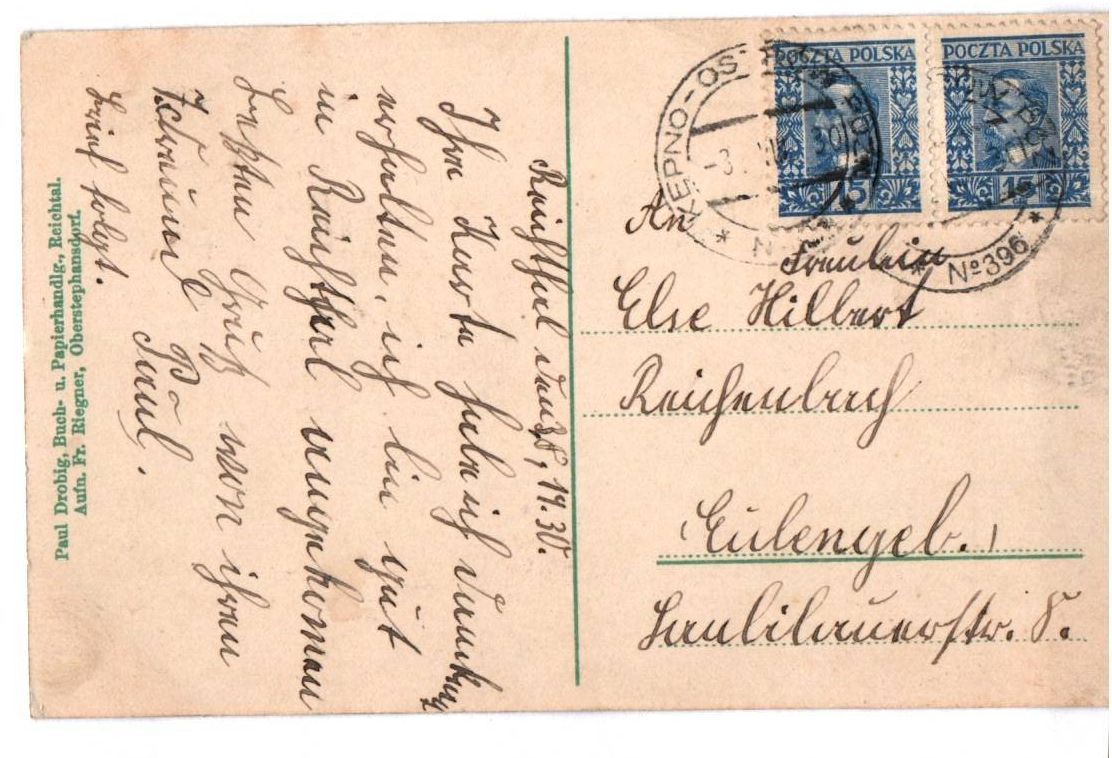 POCZTA POLSKA
POCZTA POLSKA
15
15
KĘPNO-OS
Nº 396
An
Fräulein
Else Hilbert
Reichenbach
(Eulengeb.)
Reichthal
19.30.
Ihre Karte habe ich dankend
erhalten, ich bin gut
in Reichthal angekommen
Besten Gruß von ihren
Freund
Paul.
Brief folgt.
Paul Drobig, Buch- u. Papierhandlg., Reichtal.
Aufn. Fr. Riegner, Oberstephansdorf.